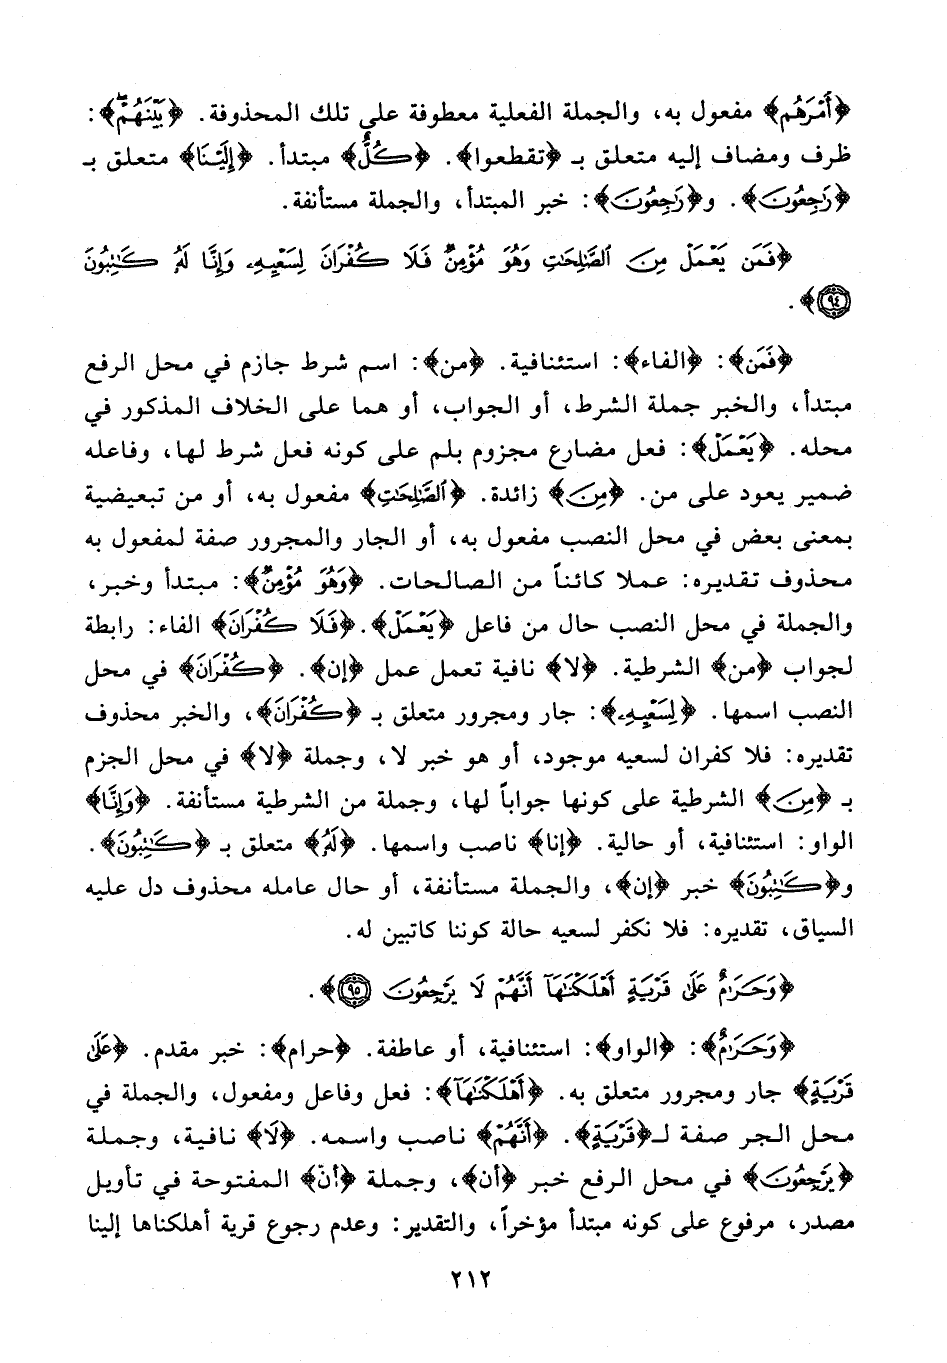 ﴿أَمْرَهُم﴾ مفعول به، والجملة الفعلية معطوفة على تلك المحذوفة. ﴿بَيْنَهُمْ﴾:
ظرف ومضاف إليه متعلق بـ ﴿تقطعوا﴾. ﴿كُلٌّ﴾ مبتدأ. ﴿إِلَيْنَا﴾ متعلق بـ
﴿رَٰجِعُونَ﴾. و﴿رَٰجِعُونَ﴾: خبر المبتدأ، والجملة مستأنفة.
﴿فَمَن يَعْمَلْ مِنَ ٱلصَّٰلِحَٰتِ وَهُوَ مُؤْمِنٌ فَلَا كُفْرَانَ لِسَعْيِهِۦ وَإِنَّا لَهُۥ كَٰتِبُونَ
٩٤﴾.
﴿فَمَن﴾: ﴿الفاء﴾: استئنافية. ﴿من﴾: اسم شرط جازم في محل الرفع
مبتدأ، والخبر جملة الشرط، أو الجواب، أو هما على الخلاف المذكور في
محله. ﴿يَعْمَلْ﴾: فعل مضارع مجزوم بلم على كونه فعل شرط لها، وفاعله
ضمير يعود على من. ﴿مِنَ﴾ زائدة. ﴿ٱلصَّٰلِحَٰتِ﴾ مفعول به، أو من تبعيضية
بمعنى بعض في محل النصب مفعول به، أو الجار والمجرور صفة لمفعول به
محذوف تقديره: عملا كائناً من الصالحات. ﴿وَهُوَ مُؤْمِنٌ﴾: مبتدأ وخبر،
والجملة في محل النصب حال من فاعل ﴿يَعْمَلْ﴾. ﴿فَلَا كُفْرَانَ﴾ الفاء: رابطة
لجواب ﴿من﴾ الشرطية. ﴿لا﴾ نافية تعمل عمل ﴿إن﴾. ﴿كُفْرَانَ﴾ في محل
النصب اسمها. ﴿لِسَعْيِهِۦ﴾: جار ومجرور متعلق بـ ﴿كُفْرَانَ﴾، والخبر محذوف
تقديره: فلا كفران لسعيه موجود، أو هو خبر لا، وجملة ﴿لا﴾ في محل الجزم
بـ ﴿مِنَ﴾ الشرطية على كونها جواباً لها، وجملة من الشرطية مستأنفة. ﴿وَإِنَّا﴾
الواو: استئنافية، أو حالية. ﴿إنا﴾ ناصب واسمها. ﴿لَهُۥ﴾ متعلق بـ ﴿كَٰتِبُونَ﴾.
و﴿كَٰتِبُونَ﴾ خبر ﴿إن﴾، والجملة مستأنفة، أو حال عامله محذوف دل عليه
السياق، تقديره: فلا نكفر لسعيه حالة كوننا كاتبين له.
﴿وَحَرَٰمٌ عَلَىٰ قَرْيَةٍ أَهْلَكْنَٰهَآ أَنَّهُمْ لَا يَرْجِعُونَ ٩٥﴾.
﴿وَحَرَٰمٌ﴾: ﴿الواو﴾: استئنافية، أو عاطفة. ﴿حرام﴾: خبر مقدم. ﴿عَلَىٰ
قَرْيَةٍ﴾ جار ومجرور متعلق به. ﴿أَهْلَكْنَٰهَآ﴾: فعل وفاعل ومفعول، والجملة في
محل الجر صفة لـ﴿قَرْيَةٍ﴾. ﴿أَنَّهُمْ﴾ ناصب واسمه. ﴿لَا﴾ نافية، وجملة
﴿يَرْجِعُونَ﴾ في محل الرفع خبر ﴿أن﴾، وجملة ﴿أنّ﴾ المفتوحة في تأويل
مصدر، مرفوع على كونه مبتدأ مؤخراً، والتقدير: وعدم رجوع قرية أهلكناها إلينا
٢١٢